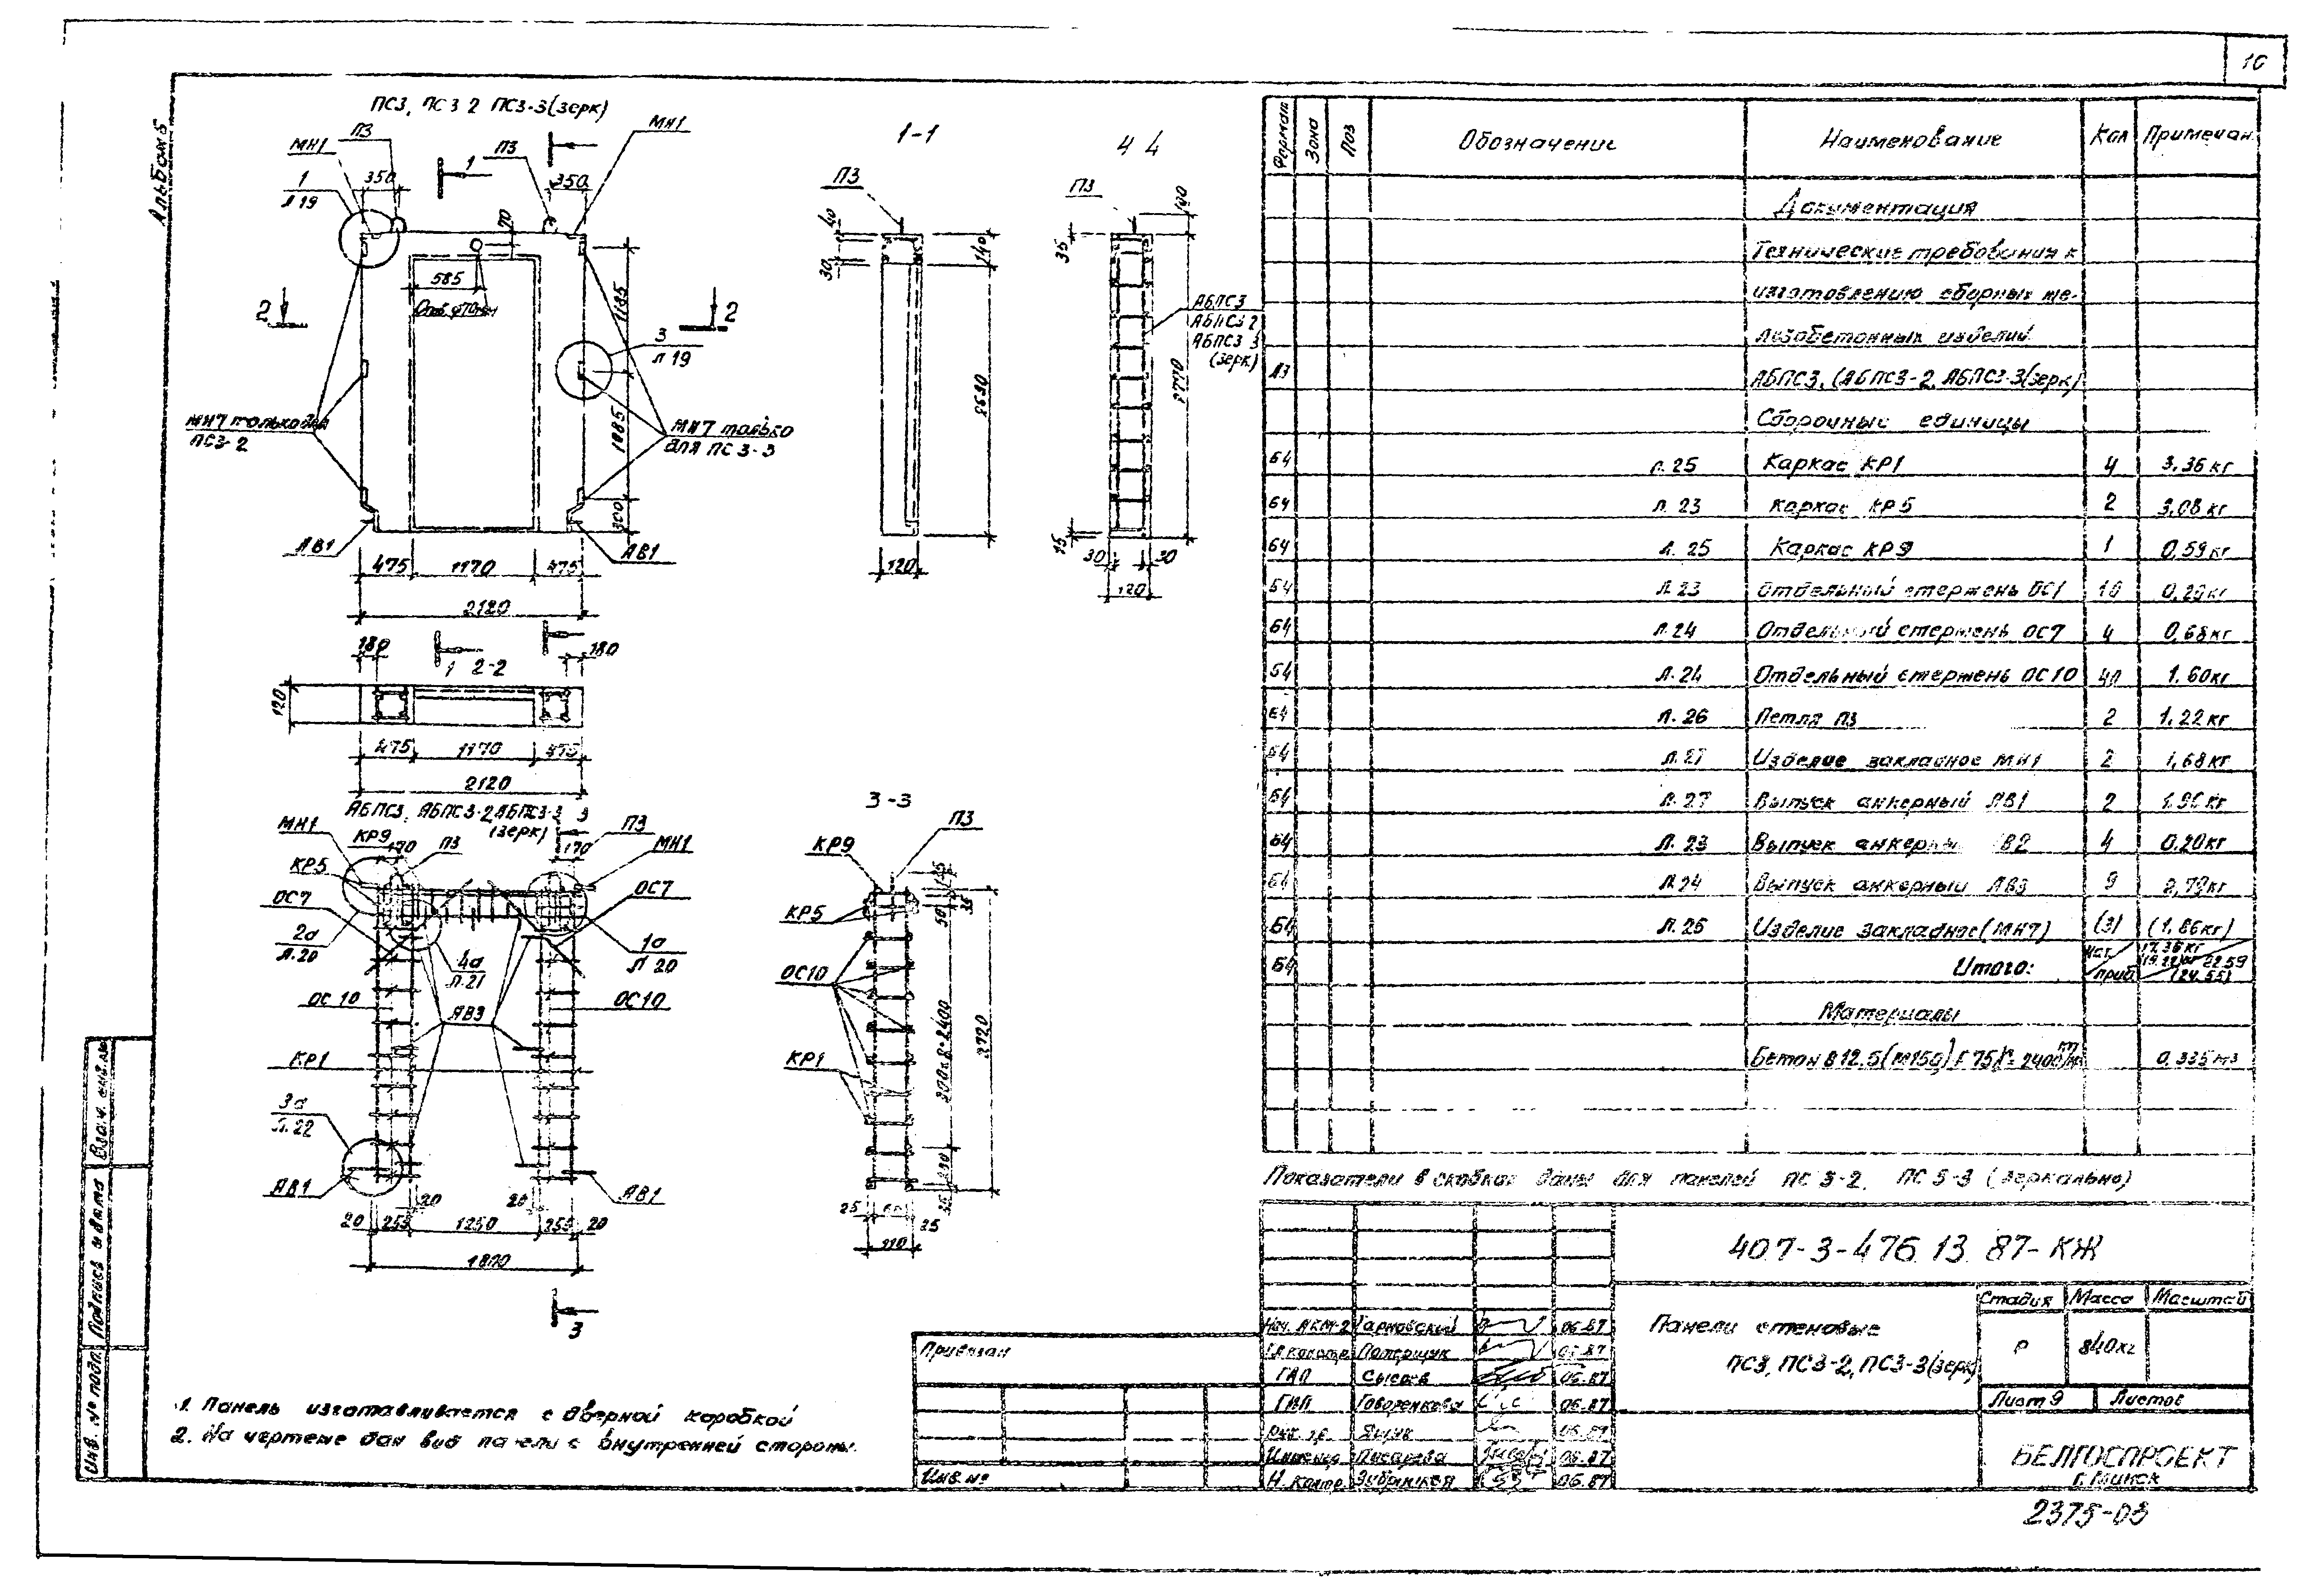 10
Альбом 5
ПС3, ПС3-2 ПС3-3(зерк)
МН1
П3
П3
МН1
1
Л 19
350
1
350
70
585
Отв. ф70мм
2
2
1185
3
Л 19
1085
МН7 только для
ПС3-2
МН7 только
для ПС3-3
300
АВ1
АВ1
475
1170
475
2120
1-1
П3
40
30
140
2630
120
4 4
П3
100
35
АБПС3
АБПС3 2
АБПС3 3
(зерк)
2770
15
30
30
120
180
1
2-2
180
120
475
1170
475
2120
АБПС3, АБПС3-2 АБПС3-3
(зерк)
3
МН1
КР9
170
П3
П3
170
МН1
КР5
ОС7
ОС7
2а
Л.20
4а
Л.21
1а
Л 20
ОС10
АВ3
ОС10
КР1
3а
Л.22
АВ1
АВ1
20
20
20
255
1250
255
20
1800
3
3-3
П3
КР9
КР5
50
35
ОС10
КР1
300х8=2400
2720
25
60
25
110
1. Панель изготавливается с дверной коробкой
2. На чертеже дан вид панели с внутренней стороны.
Формат
Зона
Поз
Обозначение
Наименование
Кол
Примечан.
Документация
Технические требования к
изготовлению сборных же-
лезобетонных изделий
А3 АБПС3, (АБПС3-2, АБПС3-3(зерк)
Сборочные единицы
Б4 Л.25 Каркас КР1 4 3.36кг
Б4 Л.23 Каркас КР5 2 3,08кг
Б4 Л.25 Каркас КР9 1 0,59кг
Б4 Л.23 Отдельный стержень ОС1 10 0,20кг
Б4 Л.24 Отдельный стержень ОС7 4 0,68кг
Б4 Л.24 Отдельный стержень ОС10 40 1.60кг
Б4 Л.26 Петля П3 2 1.22кг
Б4 Л.27 Изделие закладное МН1 2 1,68кг
Б4 Л.27 Выпуск анкерный АВ1 2 1.96кг
Б4 Л.23 Выпуск анкерны В2 4 0.20кг
Б4 Л.24 Выпуск анкерный АВ3 9 2,79кг
Б4 Л.26 Изделие закладное (МН7) (3) (1,86кг)
Б4 Итого: нат. приб. 17.36кг (19.22)кг 22.59 (24.55)
Материалы
Бетон В12.5(М150) F75 γ=2400 кг/м3 0.335м3
Показатели в скобках даны для панелей ПС 3-2, ПС 3-3 (зеркально)
407-3-476 13 87-КЖ
Панели стеновые
ПС3, ПС3-2, ПС3-3(зерк)
Стадия
Масса
Масштаб
Р
840кг
Лист 9
Листов
БЕЛГОСПРОЕКТ
г. Минск
Нач. АКМ-2 Тарновский 06.87
Гл констр. Потерщук 06.87
ГАП Сысоев 06.87
ГИП Говоренкова 06.87
Рук. гр. Ящук 06.87
Инженер Писарева 06.87
Н. контр. 06.87
Привязан
Инв. №
Взам. инв. №
Подпись и дата
Инв. № подл.
2375-03